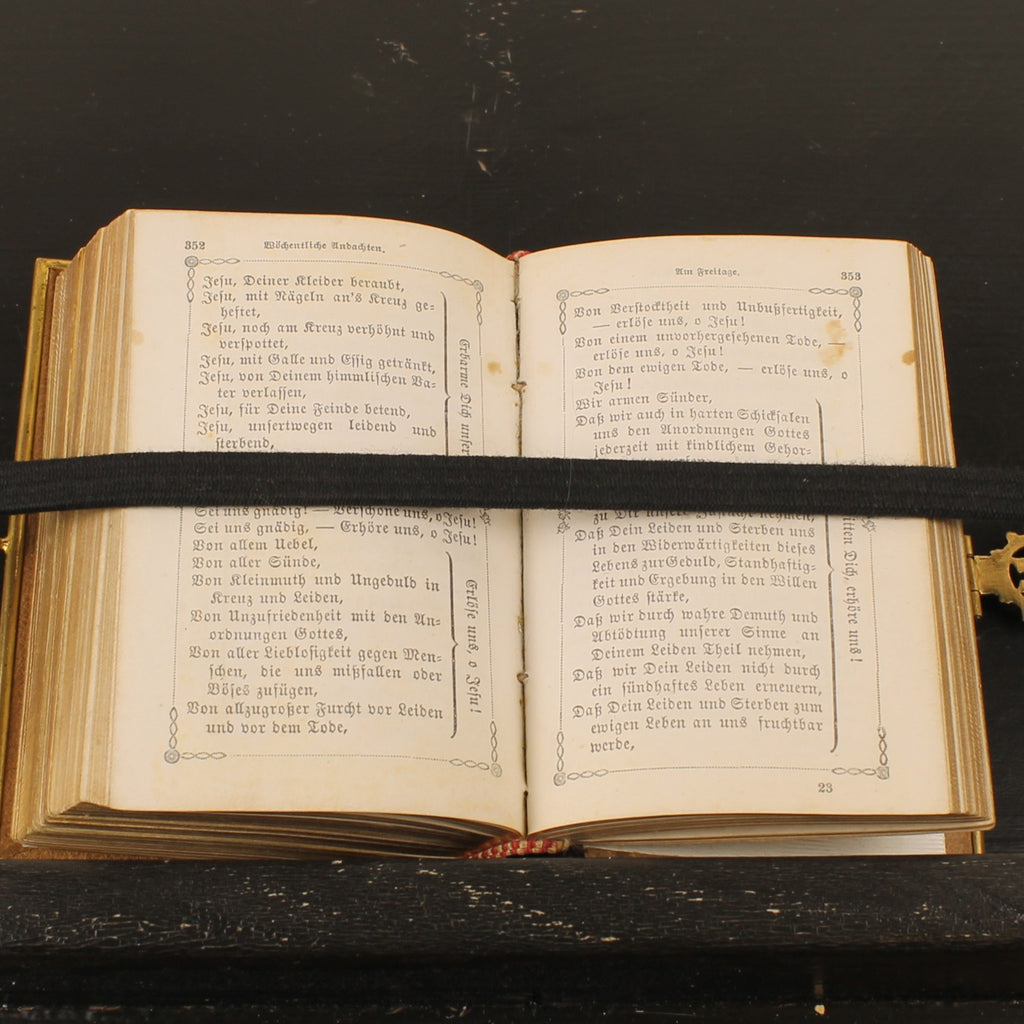 352
Wöchentliche Andachten.
Jesu, Deiner Kleider beraubt,
Jesu, mit Nägeln an's Kreuz ge-
heftet,
Jesu, noch am Kreuz verhöhnt und
verspottet,
Jesu, mit Galle und Essig getränkt,
Jesu, von Deinem himmlischen Va-
ter verlassen,
Jesu, für Deine Feinde betend,
Jesu, unsertwegen leidend und
sterbend,
Erbarme Dich unser
Sei uns gnädig! — Verschone uns, o Jesu!
Sei uns gnädig, — Erhöre uns, o Jesu!
Von allem Uebel,
Von aller Sünde,
Von Kleinmuth und Ungeduld in
Kreuz und Leiden,
Von Unzufriedenheit mit den An-
ordnungen Gottes,
Von aller Lieblosigkeit gegen Men-
schen, die uns mißfallen oder
Böses zufügen,
Von allzugroßer Furcht vor Leiden
und vor dem Tode,
Erlöse uns, o Jesu!
Am Freitage.
353
Von Verstocktheit und Unbußfertigkeit,
— erlöse uns, o Jesu!
Von einem unvorhergesehenen Tode, —
erlöse uns, o Jesu!
Von dem ewigen Tode, — erlöse uns, o
Jesu!
Wir armen Sünder,
Daß wir auch in harten Schicksalen
uns den Anordnungen Gottes
jederzeit mit kindlichem Gehor-
zu Dir unsere Zuflucht nehmen,
Daß Dein Leiden und Sterben uns
in den Widerwärtigkeiten dieses
Lebens zur Geduld, Standhaftig-
keit und Ergebung in den Willen
Gottes stärke,
Daß wir durch wahre Demuth und
Abtödtung unserer Sinne an
Deinem Leiden Theil nehmen,
Daß wir Dein Leiden nicht durch
ein sündhaftes Leben erneuern,
Daß Dein Leiden und Sterben zum
ewigen Leben an uns fruchtbar
werde,
bitten Dich, erhöre uns!
23